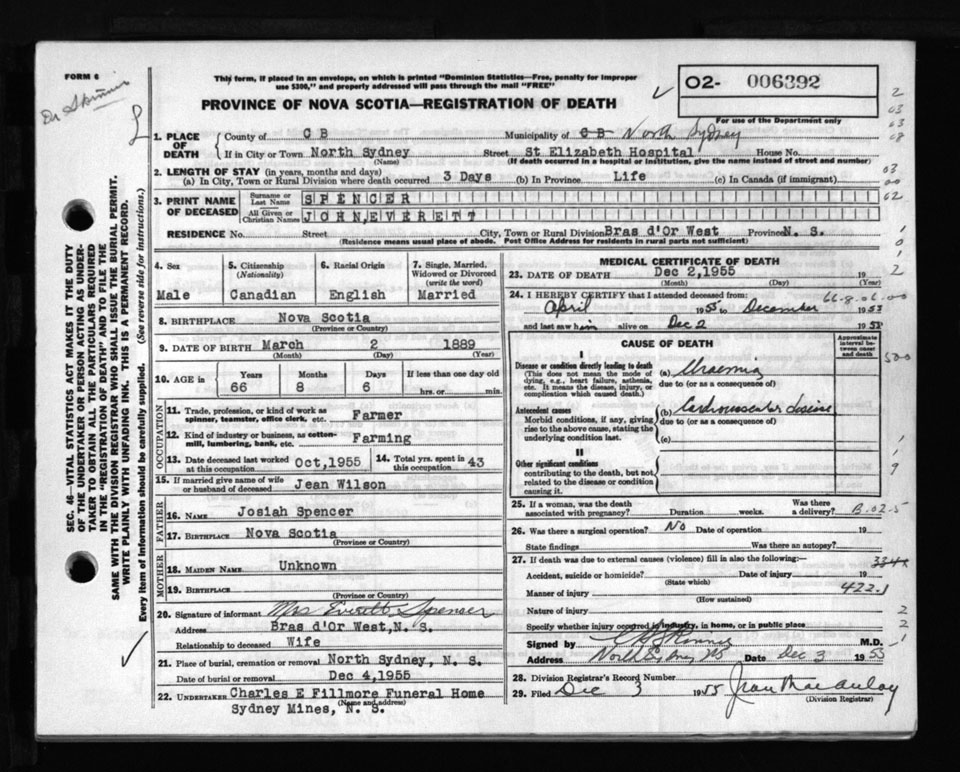 FORM 6
Dr Skinner
This form, if placed in an envelope, on which is printed "Dominion Statistics—Free, penalty for improper
use $300," and properly addressed will pass through the mail "FREE"
PROVINCE OF NOVA SCOTIA—REGISTRATION OF DEATH
02- 006392
For use of the Department only
1. PLACE OF DEATH
County of C B Municipality of C B North Sydney
If in City or Town North Sydney Street St Elizabeth Hospital House No.
(Name) (If death occurred in a hospital or institution, give the name instead of street and number)
2. LENGTH OF STAY (in years, months and days)
(a) In City, Town or Rural Division where death occurred 3 Days (b) In Province Life (c) In Canada (if immigrant)
3. PRINT NAME OF DECEASED
Surname or Last Name SPENCER
All Given or Christian Names JOHN,EVERETT
RESIDENCE No. Street City, Town or Rural Division Bras d'Or West Province N. S.
(Residence means usual place of abode. Post Office Address for residents in rural parts not sufficient)
4. Sex
Male
5. Citizenship (Nationality)
Canadian
6. Racial Origin
English
7. Single, Married, Widowed or Divorced (write the word)
Married
8. BIRTHPLACE Nova Scotia
(Province or Country)
9. DATE OF BIRTH March 2 1889
(Month) (Day) (Year)
10. AGE in Years Months Days If less than one day old
66 8 6 hrs. or min.
OCCUPATION
11. Trade, profession, or kind of work as spinner, teamster, office clerk, etc. Farmer
12. Kind of industry or business, as cotton-mill, lumbering, bank, etc. Farming
13. Date deceased last worked at this occupation Oct,1955 14. Total yrs. spent in this occupation 43
15. If married give name of wife or husband of deceased Jean Wilson
FATHER
16. NAME Josiah Spencer
17. BIRTHPLACE Nova Scotia
(Province or Country)
MOTHER
18. MAIDEN NAME Unknown
19. BIRTHPLACE
(Province or Country)
20. Signature of informant Mrs Everett Spencer
Address Bras d'Or West,N. S.
Relationship to deceased Wife
21. Place of burial, cremation or removal North Sydney, N. S.
Date of burial or removal Dec 4,1955
22. UNDERTAKER Charles E Fillmore Funeral Home
(Name and address)
Sydney Mines, N. S.
MEDICAL CERTIFICATE OF DEATH
23. DATE OF DEATH Dec 2,1955 19
(Month) (Day) (Year)
24. I HEREBY CERTIFY that I attended deceased from:
66-8-06-00
April 1955 to December 1955
and last saw him alive on Dec 2 1955
CAUSE OF DEATH
Approximate interval between onset and death
I
Disease or condition directly leading to death
(This does not mean the mode of dying, e.g., heart failure, asthenia, etc. It means the disease, injury, or complication which caused death.)
(a) Uraemia
due to (or as a consequence of)
Antecedent causes
Morbid conditions, if any, giving rise to the above cause, stating the underlying condition last.
(b) Cardiovascular disease
due to (or as a consequence of)
(c)
II
Other significant conditions
contributing to the death, but not related to the disease or condition causing it.
25. If a woman, was the death associated with pregnancy? Duration weeks. Was there a delivery?
B-02-5
26. Was there a surgical operation? No Date of operation 19
State findings Was there an autopsy?
27. If death was due to external causes (violence) fill in also the following:—
Accident, suicide or homicide? Date of injury 19
(State which)
Manner of injury 422.1
(How sustained)
Nature of injury
Specify whether injury occurred in industry, in home, or in public place
Signed by M.D.
Address Date Dec 3 1955
28. Division Registrar's Record Number
29. Filed Dec 3 1955 Jean MacAulay
(Division Registrar)
SEC. 46—VITAL STATISTICS ACT MAKES IT THE DUTY
OF THE UNDERTAKER OR PERSON ACTING AS UNDER-
TAKER TO OBTAIN ALL THE PARTICULARS REQUIRED
IN THE "REGISTRATION OF DEATH" AND TO FILE THE
SAME WITH THE DIVISION REGISTRAR WHO SHALL ISSUE THE BURIAL PERMIT.
WRITE PLAINLY WITH UNFADING INK. THIS IS A PERMANENT RECORD.
Every item of Information should be carefully supplied. (See reverse side for instructions.)